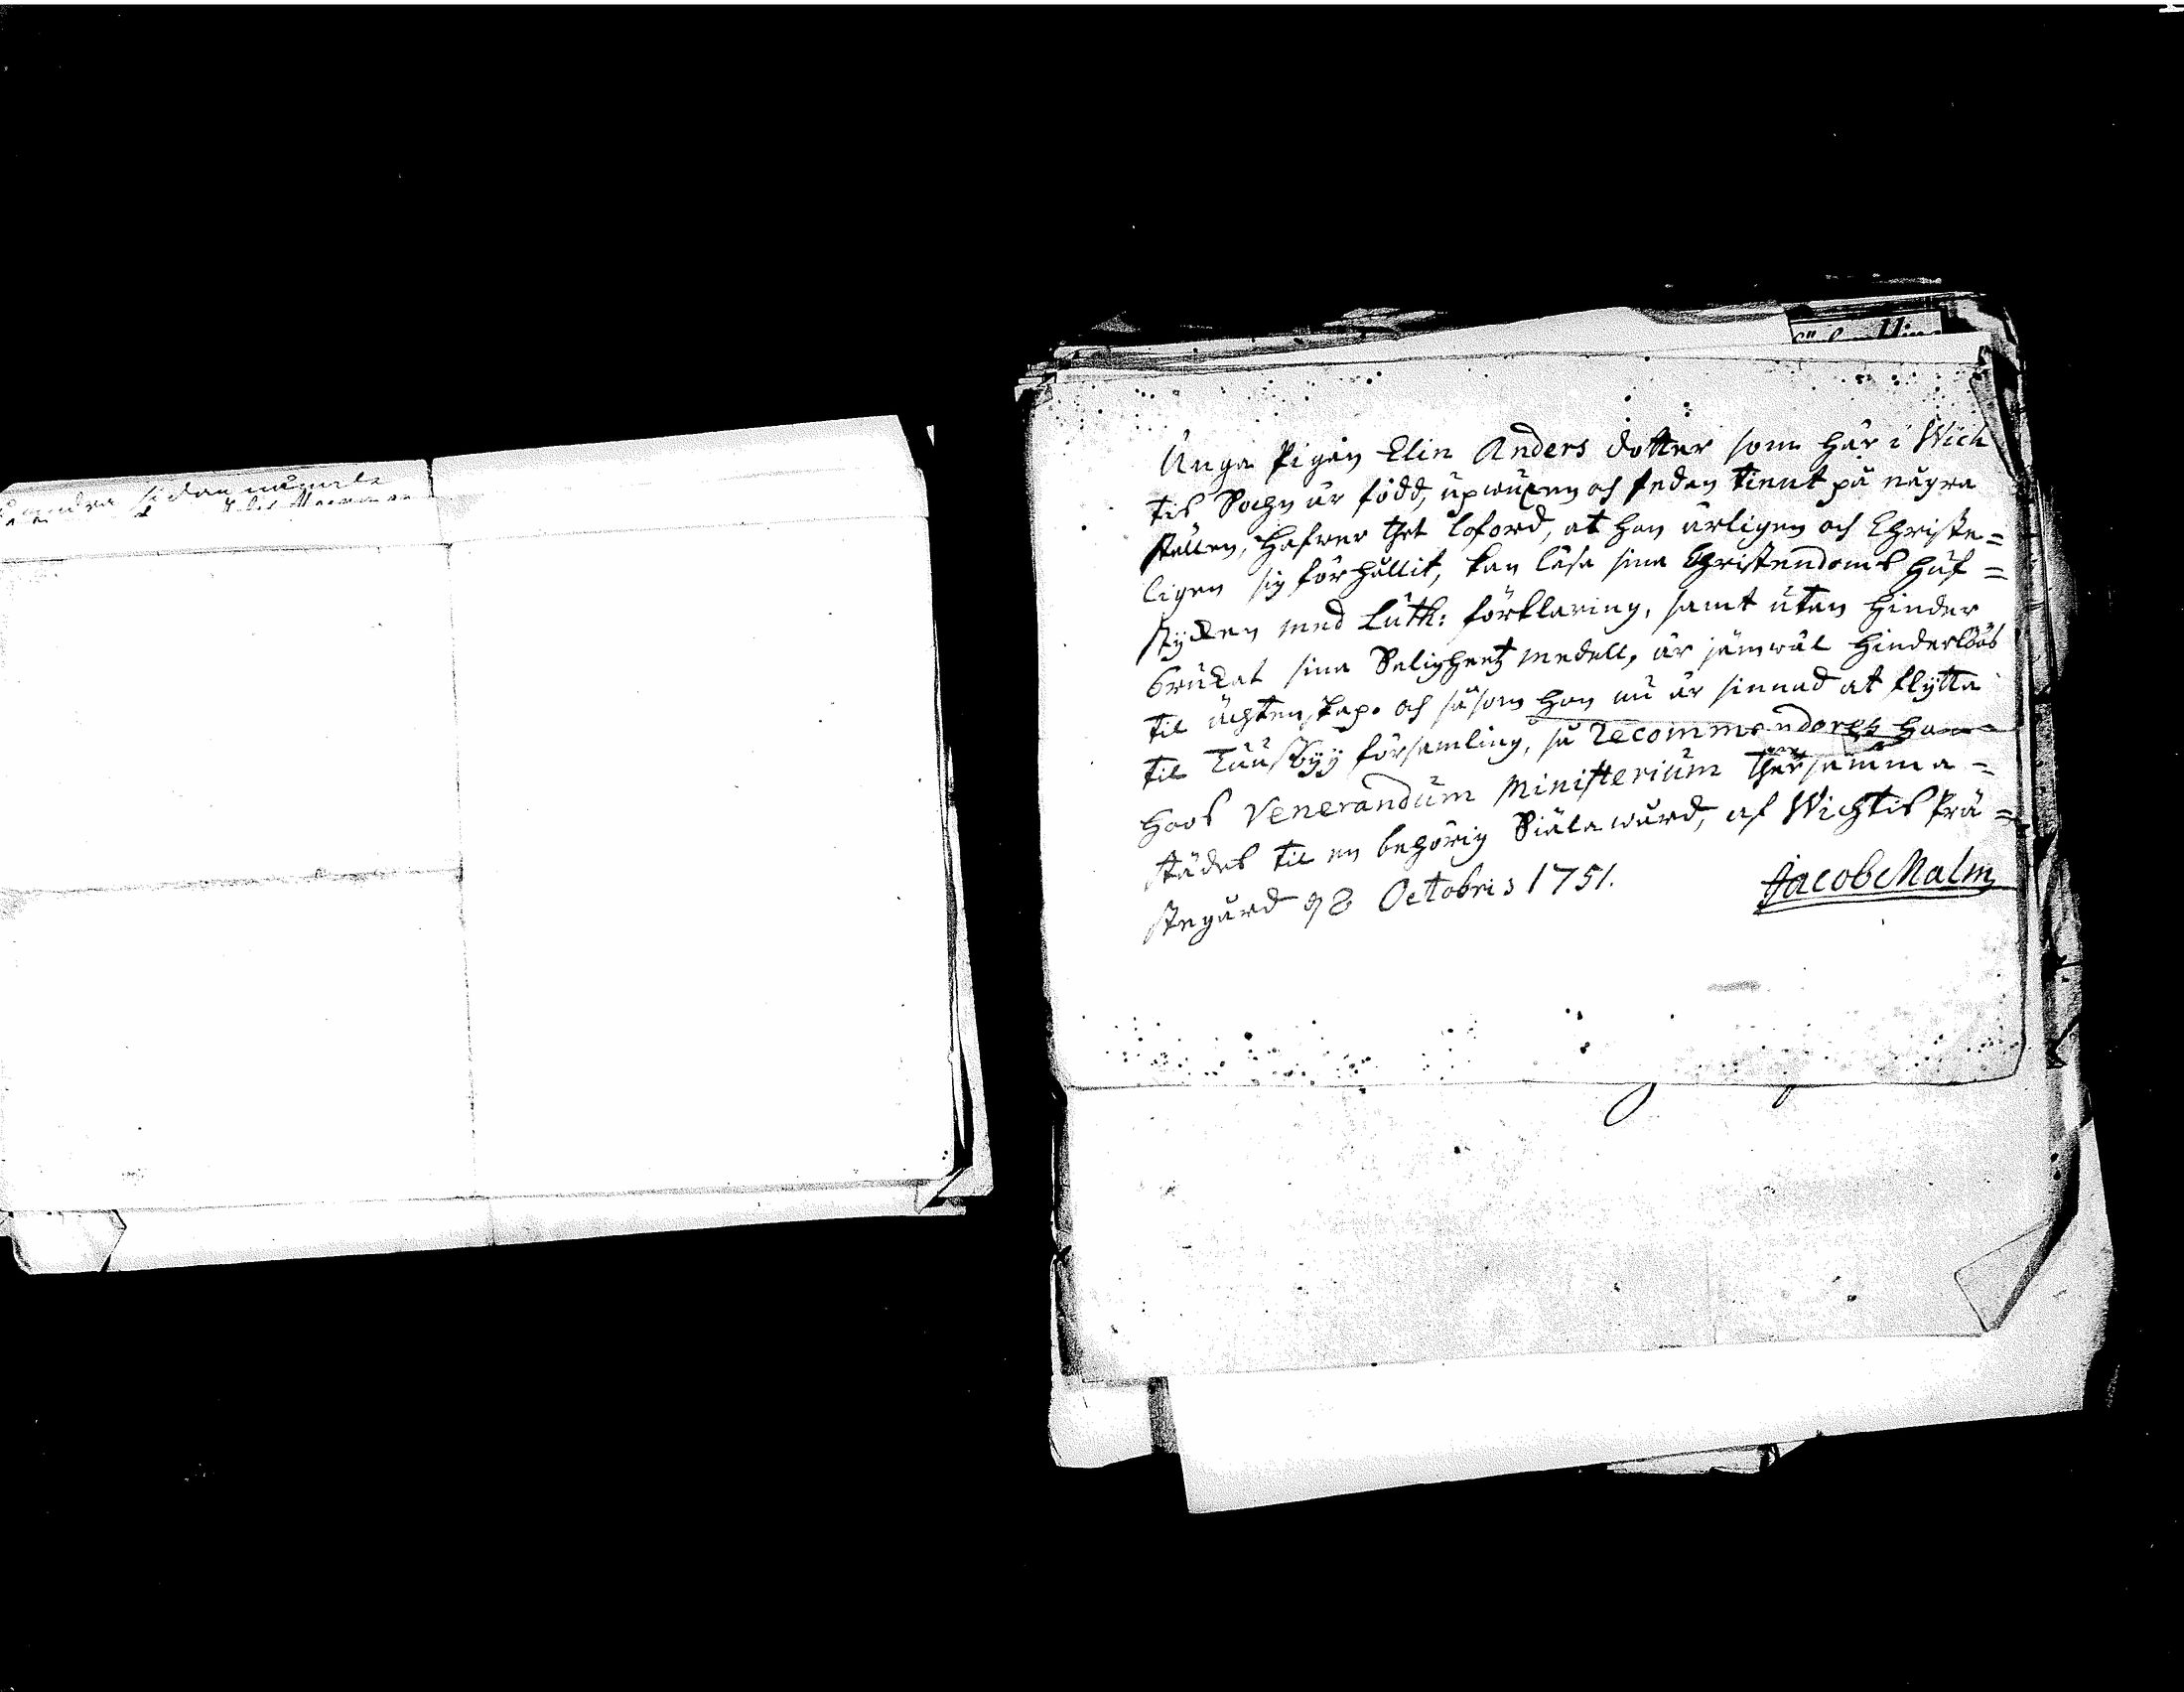 andra sidan nämnde
Unga Pigan Elin Anders dotter som här i Wich
tis Sochn är född, upwuxen och sedan tient på några
ställen, hafwer thet loford, at hon ärligen och Christe=
ligen sig förhållit, kan läsa sina Christendoms huf=
stycken med Luth: förklaring, samt utan hinder
brukat sina Salighetz medell, är jämwäl hinderlöös
til ächtenskap. och såsom hon nu är sinnad at flytta
til Tuusby församling, så recommenderes hon
hoos Venerandum Ministerium thersamma=
städes til en behörig Siälawård, af Wichtis Prä=
stegård d 8 Octobris 1751.
Jacob Malm